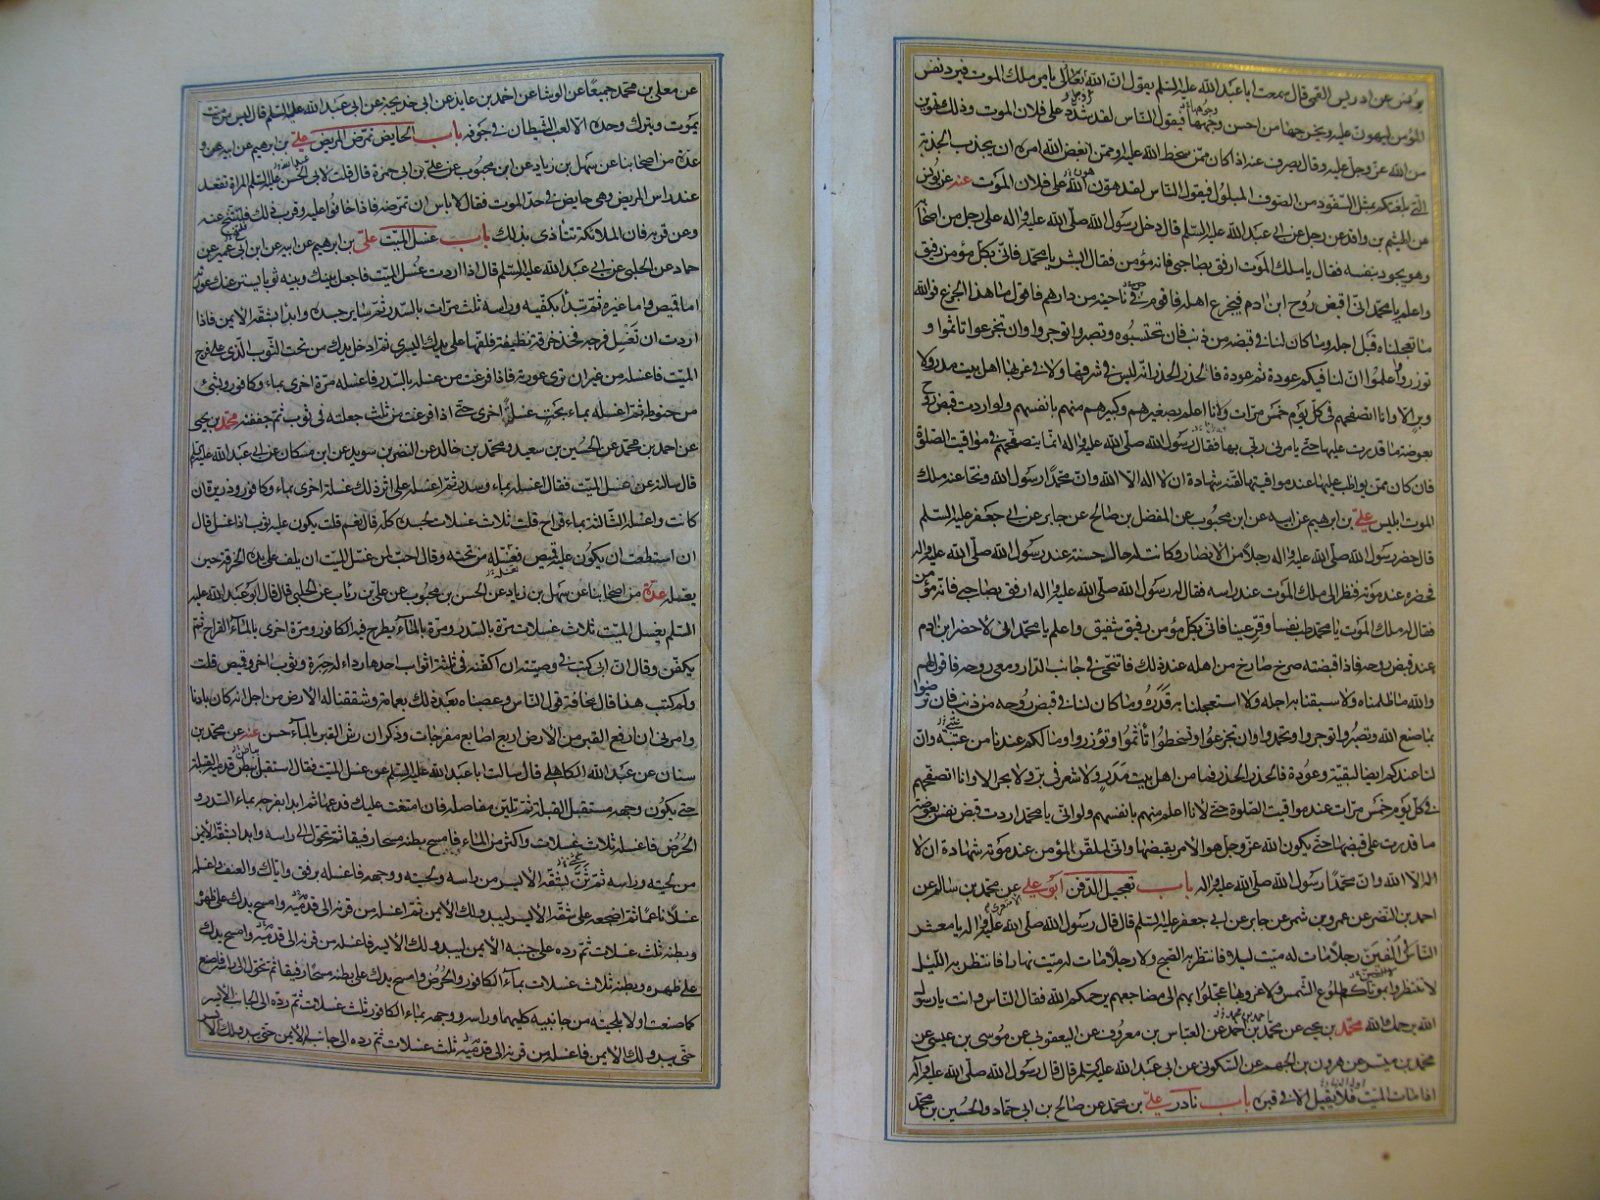 يونس عن ادريس القمى قال سمعت ابا عبد الله عليه السلم يقول ان الله تعالى يامر ملك الموت فيرد نفس
المؤمن ليهون عليه ويخرجها من احسن وجهها فيقول الناس لقد شدد على فلان الموت وذلك تهوين
من الله عز وجل عليه وقال يصرف عنه اذا كان ممن سخط الله عليه او ممن ابغض الله امره ان يجذب الجذبة
التى بلغتكم بمثل السفود من الصوف المبلول فيقول الناس لقد هون الله على فلان الموت عنه عن يونس
عن الهيثم بن واقد عن رجل عن ابى عبد الله عليه السلم قال دخل رسول الله صلى الله عليه واله على رجل من اصحابه
وهو يجود بنفسه فقال يا ملك الموت ارفق بصاحبى فانه مؤمن فقال ابشر يا محمد فانى بكل مؤمن رفيق
واعلم يا محمد انى اقبض روح ابن ادم فيجزع اهله فاقوم فى ناحية من دارهم فاقول ما هذا الجزع فوالله
ما تعجلناه قبل اجله وما كان لنا فى قبضه من ذنب فان تحتسبوه وتصبروا توجروا وان تجزعوا تاثموا و
توزروا واعلموا ان لنا فيكم عودة ثم عودة فالحذر الحذر انه ليس فى شرقها ولا فى غربها اهل بيت مدر ولا
وبر الا وانا اتصفحهم فى كل يوم خمس مرات ولانا اعلم بصغيرهم وكبيرهم منهم بانفسهم ولو اردت قبض روح
بعوضة ما قدرت عليها حتى يامرنى ربى بها فقال رسول الله صلى الله عليه واله انما يتصفحهم فى مواقيت الصلوة
فان كان ممن يواظب عليها عند مواقيتها لقنه شهادة ان لا اله الا الله وان محمدا رسول الله ونحا عنه ملك
الموت ابليس على بن ابرهيم عن ابيه عن ابن محبوب عن المفضل بن صالح عن جابر عن ابى جعفر عليه السلم
قال حضر رسول الله صلى الله عليه واله رجلا من الانصار وكانت له حال حسنة عند رسول الله صلى الله عليه واله
فحضره عند موته فنظر الى ملك الموت عند راسه فقال له رسول الله صلى الله عليه واله ارفق بصاحبى فانه مؤمن
فقال له ملك الموت يا محمد طب نفسا وقر عينا فانى بكل مؤمن رفيق شفيق واعلم يا محمد انى لاحضر ابن ادم
عند قبض روحه فاذا قبضته صرخ صارخ من اهله عند ذلك فاتنحى فى جانب الدار ومعى روحه فاقول لهم
والله ما ظلمناه ولا سبقنا به اجله ولا استعجلنا به قدره وما كان لنا فى قبض روحه من ذنب فان ترضوا
بما صنع الله وتصبروا توجروا وتحمدوا وان تجزعوا وتسخطوا تأثموا وتؤزروا وما لكم عندنا من عتبة وان
لنا عندكم ايضا لبقية وعودة فالحذر الحذر فما من اهل بيت مدر ولا شعر فى بر ولا بحر الا وانا اتصفحهم
فى كل يوم خمس مرات عند مواقيت الصلوة حتى لانا اعلم منهم بانفسهم ولو انى يا محمد اردت قبض نفس بعوضة
ما قدرت على قبضها حتى يكون الله عز وجل هو الامر بقبضها وانى لملقن المؤمن عند موته شهادة ان لا
اله الا الله وان محمدا رسول الله صلى الله عليه واله باب تعجيل الدفن ابو على عن محمد بن سالم عن
احمد بن النضر عن عمرو بن شمر عن جابر عن ابى جعفر عليه السلم قال قال رسول الله صلى الله عليه واله يا معشر
الناس لا الفين رجلا مات له ميت ليلا فانتظر به الصبح ولا رجلا مات له ميت نهارا فانتظر به الليل
لا تنتظروا بموتاكم طلوع الشمس ولا غروبها عجلوا بهم الى مضاجعهم يرحمكم الله فقال الناس وانت يا رسول
الله يرحمك الله محمد بن يحيى عن محمد بن احمد عن العباس بن معروف عن اليعقوبى عن موسى بن عيسى عن
محمد بن ميسر عن هرون بن الجهم عن السكونى عن ابى عبد الله عليه السلم قال قال رسول الله صلى الله عليه واله
اذا مات الميت فلا يقيل الا فى قبره باب نادر على بن محمد عن صالح بن ابى حماد والحسين بن محمد
عن معلى بن محمد جميعا عن الوشا عن احمد بن عايذ عن ابى خديجة عن ابى عبد الله عليه السلم قال ليس من ميت
يموت ويترك وحده الا لعب الشيطان فى جوفه باب الحايض تمرض المريض على بن ابرهيم عن ابيه عن و
عدة من اصحابنا عن سهل بن زياد عن ابن محبوب عن على بن ابى حمزة قال قلت لابى الحسن عليه السلم المراة تقعد
عند راس المريض وهى حايض فى حد الموت فقال لا باس ان تمرضه فاذا خافوا عليه وقرب ذلك فلتتنح عنه
وعن قربه فان الملائكة تتاذى بذلك باب غسل الميت على بن ابرهيم عن ابيه عن ابن ابى عمير عن
حماد عن الحلبى عن ابى عبد الله عليه السلم قال اذا اردت غسل الميت فاجعل بينك وبينه ثوبا يستر عنك عورته
اما قميص واما غيره ثم تبدأ بكفيه وراسه ثلث مرات بالسدر ثم سايرجسده وابدأ بشقه الايمن فاذا
اردت ان تغسل فرجه فخذ خرقة نظيفة فلفها على يدك اليسرى ثم ادخل يدك من تحت الثوب الذى على فرج
الميت فاغسله من غير ان ترى عورته فاذا فرغت من غسله بالسدر فاغسله مرة اخرى بماء وكافور وشئ
من حنوطه ثم اغسله بماء بحت غسلة اخرى حتى اذا فرغت من ثلث جعلته فى ثوب ثم جففته محمد بن يحيى
عن احمد بن محمد عن الحسين بن سعيد ومحمد بن خالد عن النضر بن سويد عن ابن مسكان عن ابى عبد الله عليه السلم
قال سالته عن غسل الميت فقال اغسله بماء وسدر ثم اغسله على اثر ذلك غسلة اخرى بماء وكافور وذريرة ان
كانت واغسله الثالثة بماء قراح قلت ثلاث غسلات لجسده كله قال نعم قلت يكون عليه ثوب اذا غسل قال
ان استطعت ان يكون عليه قميص فغسله من تحته وقال احب لمن غسل الميت ان يلف على يده الخرقة حين
يغسله عدة من اصحابنا عن سهل بن زياد عن الحسن بن محبوب عن على بن رئاب عن الحلبى قال قال ابو عبد الله عليه
السلم يغسل الميت ثلاث غسلات مرة بالسدر ومرة بالماء يطرح فيه الكافور ومرة اخرى بالماء القراح ثم
يكفن وقال ان ابى كتب فى وصيته ان اكفنه فى ثلثة اثواب احدها رداء له حبرة وثوب اخر وقميص قلت
ولم كتب هذا قال مخافة قول الناس وعصبناه بعد ذلك بعمامة وشققنا له الارض من اجل انه كان بادنا
وامرنى ان ارفع القبر من الارض اربع اصابع مفرجات وذكر ان رش القبر بالماء حسن عنه عن محمد بن
سنان عن عبد الله الكاهلى قال سالت ابا عبد الله عليه السلم عن غسل الميت فقال استقبل بباطن قدميه القبلة
حتى يكون وجهه مستقبل القبلة ثم تلين مفاصله فان امتنعت عليك فدعها ثم ابدا بفرجه بماء السدر و
الحرض فاغسله ثلاث غسلات واكثر من الماء فامسح بطنه مسحا رفيقا ثم تحول الى راسه وابدا بشقه الايمن
من لحيته وراسه ثم تثنى بشقه الايسر من راسه ولحيته ووجهه فاغسله برفق واياك والعنف واغسله
غسلا ناعما ثم اضجعه على شقه الايسر ليبدو لك الايمن ثم اغسله من قرنه الى قدميه وامسح يدك على ظهره
وبطنه ثلث غسلات ثم رده على جنبه الايمن ليبدو لك الايسر فاغسله من قرنه الى قدميه وامسح يدك
على ظهره وبطنه ثلاث غسلات بماء الكافور والحرض وامسح يدك على بطنه مسحا رفيقا ثم تحول الى راسه فاصنع
كما صنعت اولا بلحيته من جانبيه كليهما وراسه ووجهه بماء الكافور ثلث غسلات ثم رده الى الجانب الايسر
حتى يبدو لك الايمن فاغسله من قرنه الى قدميه ثلث غسلات ثم رده الى جانبه الايمن حتى يبدو لك الايسر